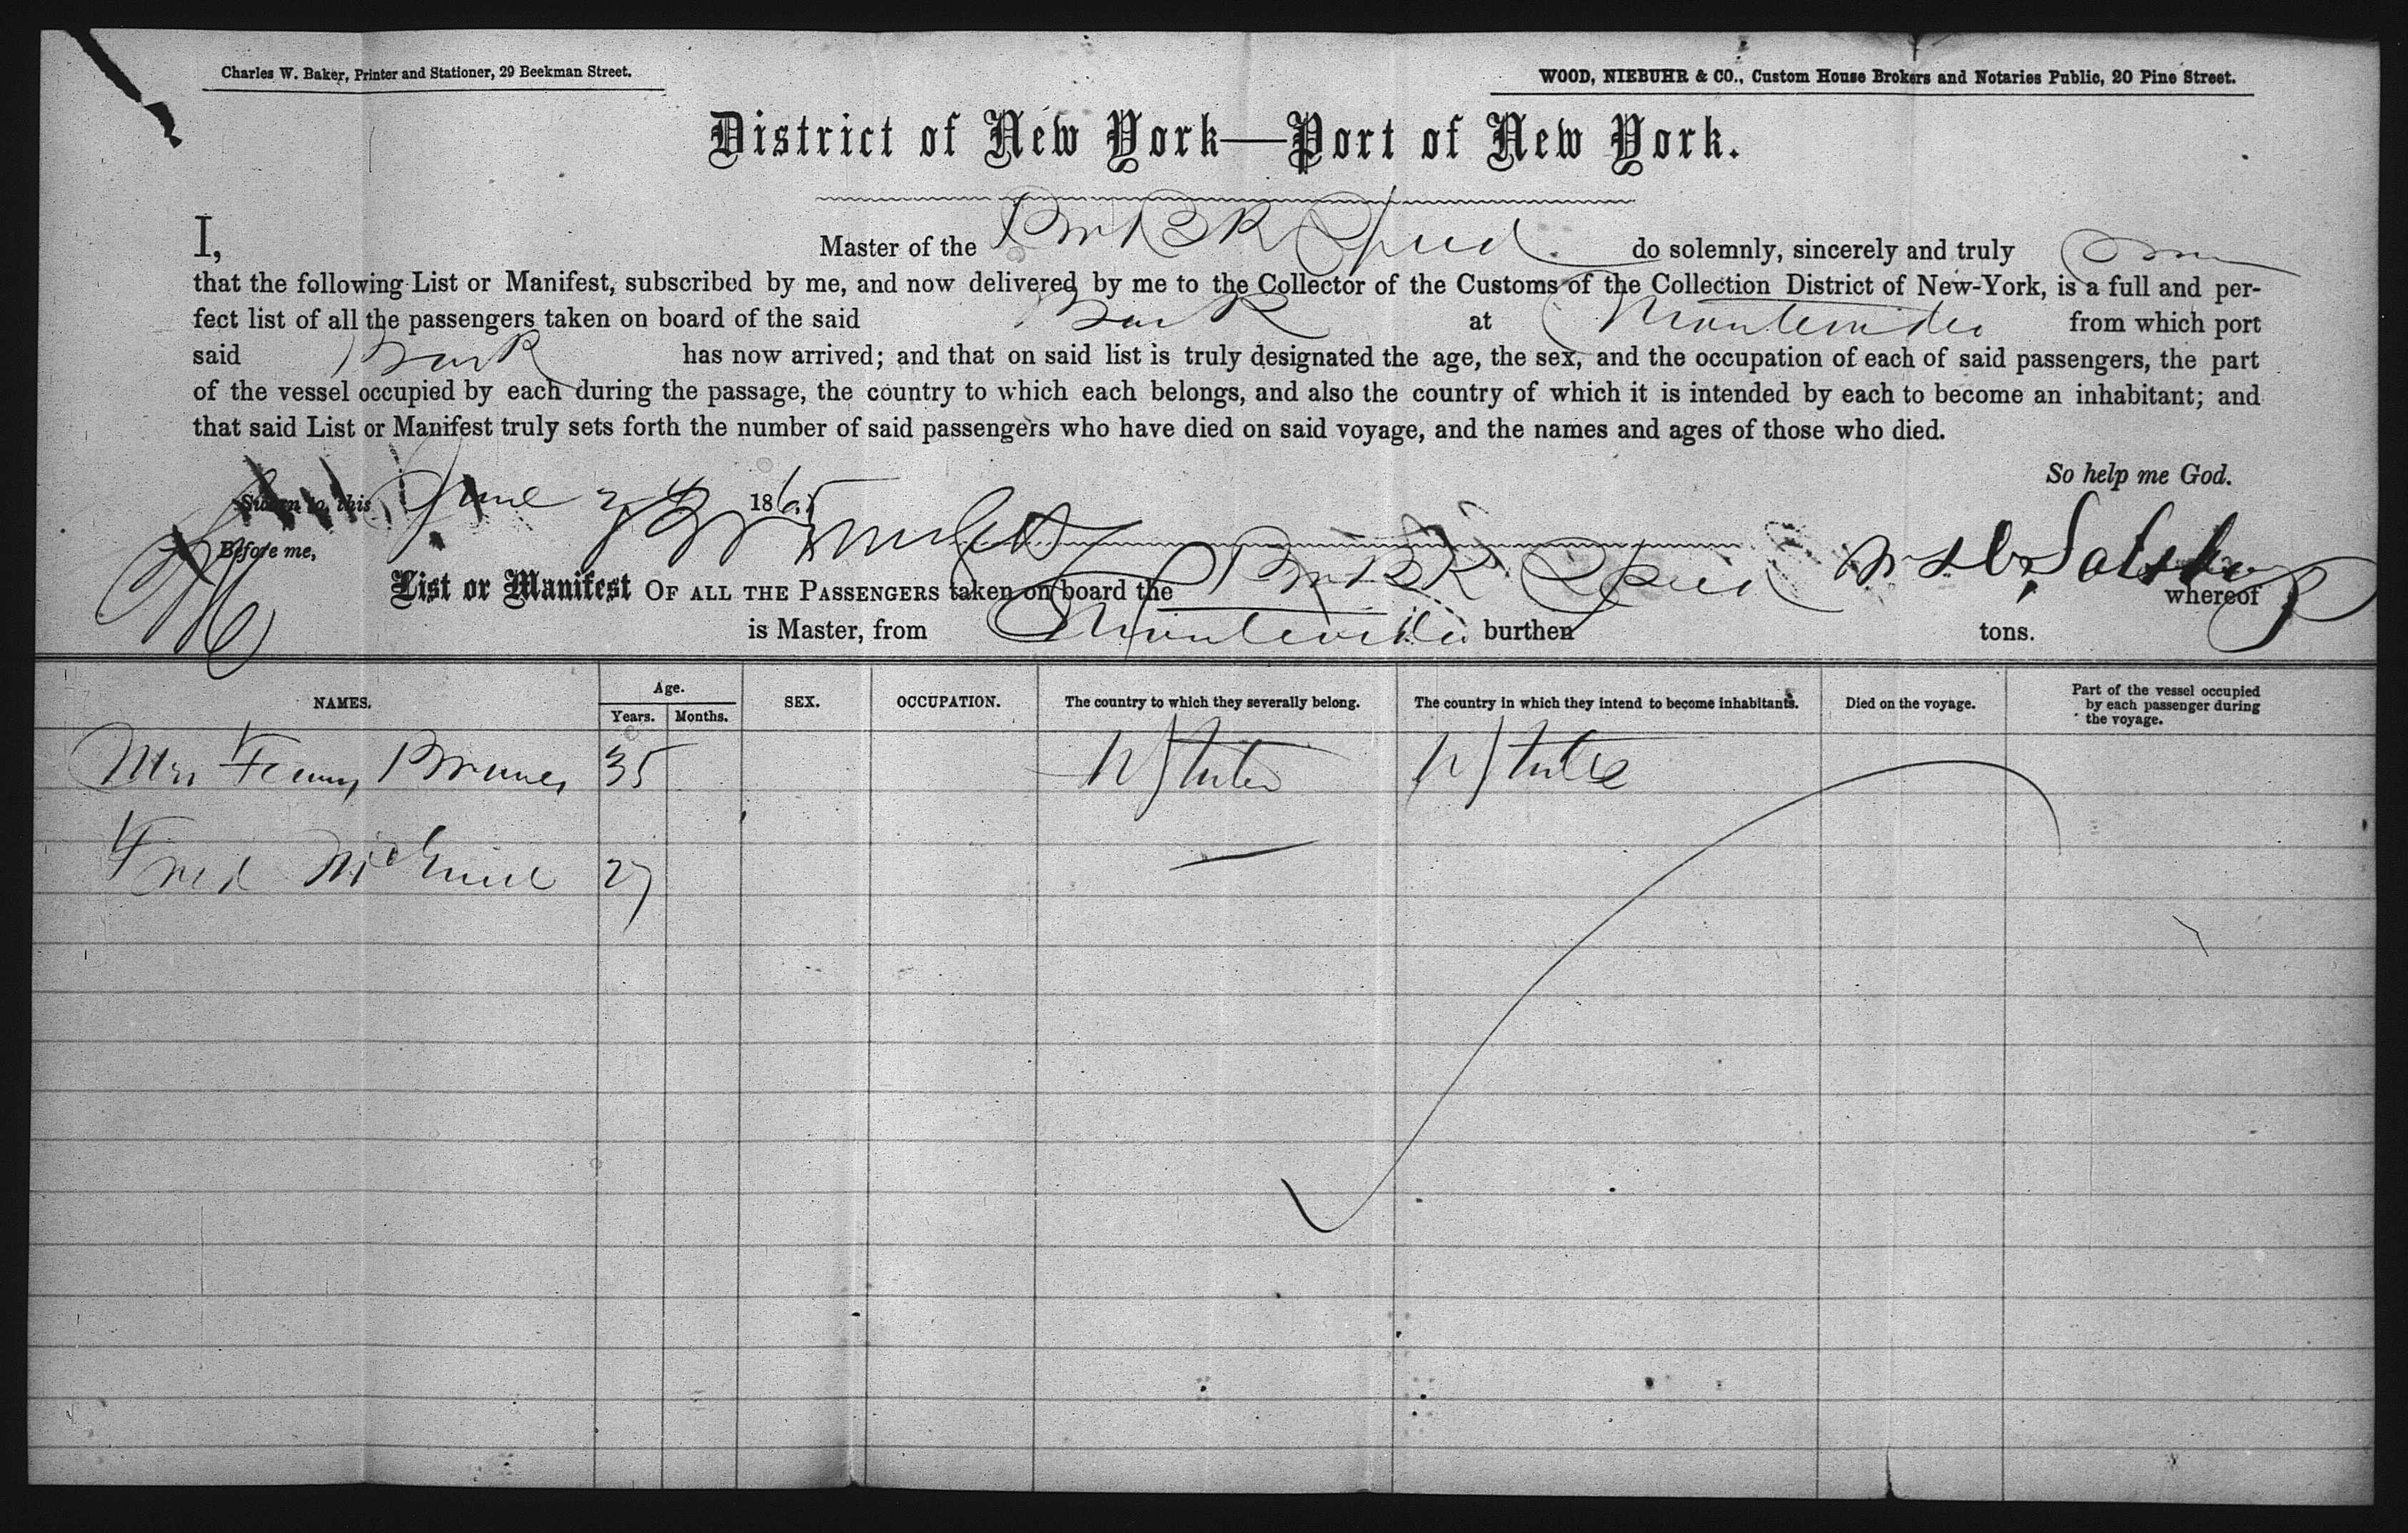 Charles W. Baker, Printer and Stationer, 29 Beekman Street.
WOOD, NIEBUHR & CO., Custom House Brokers and Notaries Public, 20 Pine Street.
District of New York—Port of New York.
I, Master of the do solemnly, sincerely and truly
that the following List or Manifest, subscribed by me, and now delivered by me to the Collector of the Customs of the Collection District of New-York, is a full and per-
fect list of all the passengers taken on board of the said Bark at Montevideo from which port
said Bark has now arrived; and that on said list is truly designated the age, the sex, and the occupation of each of said passengers, the part
of the vessel occupied by each during the passage, the country to which each belongs, and also the country of which it is intended by each to become an inhabitant; and
that said List or Manifest truly sets forth the number of said passengers who have died on said voyage, and the names and ages of those who died.
So help me God.
Sworn to, this June 1865
Before me,
List or Manifest OF ALL THE PASSENGERS taken on board the whereof
is Master, from Montevideo burthen tons.
NAMES. Age. SEX. OCCUPATION. The country to which they severally belong. The country in which they intend to become inhabitants. Died on the voyage. Part of the vessel occupied by each passenger during the voyage.
Years. Months.
Mrs 35 U States U States
Fred McGuire 27